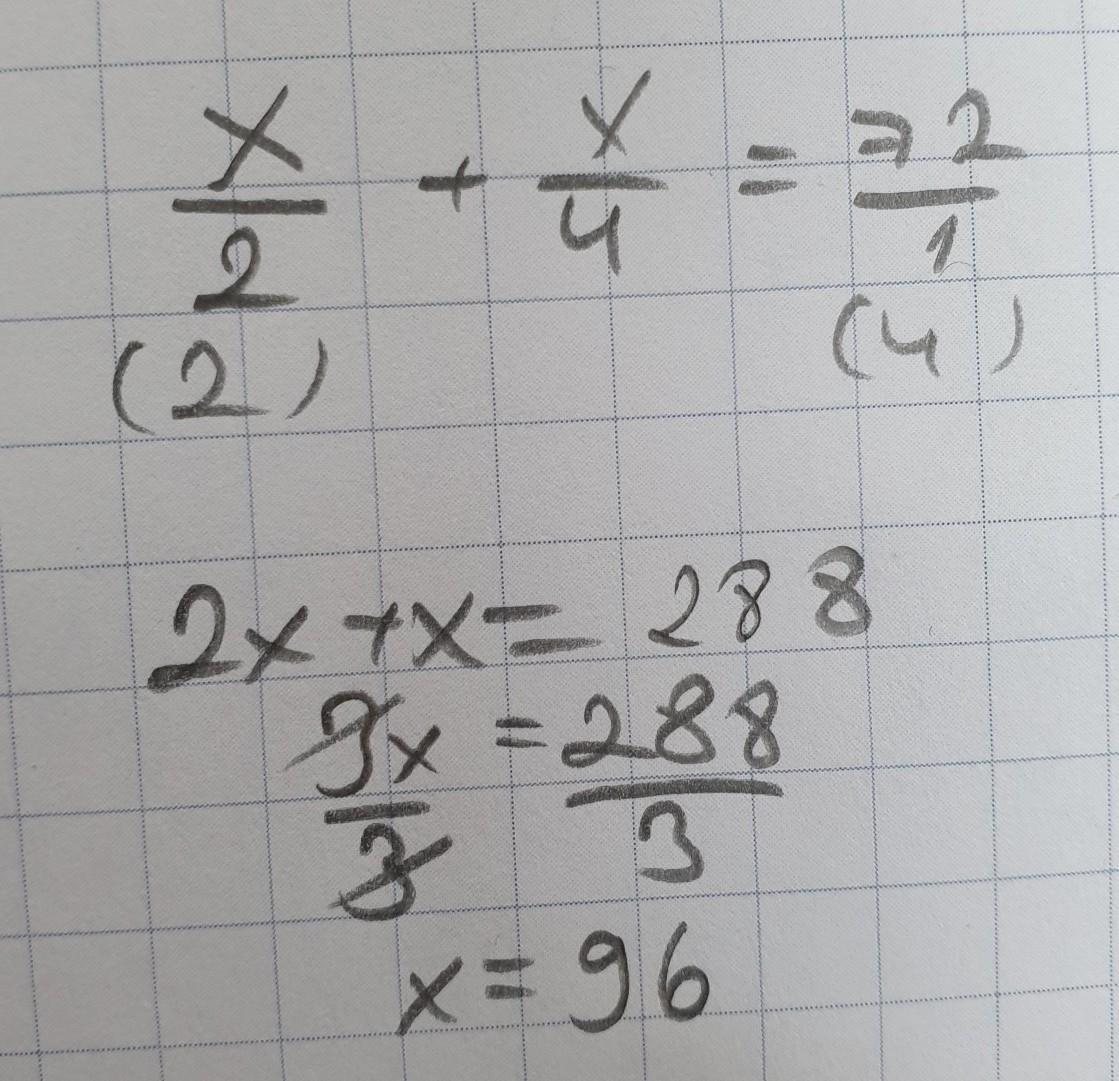 x/2 + x/4 = 72/1
(2) (4)
2x + x = 288
3x/3 = 288/3
x = 96